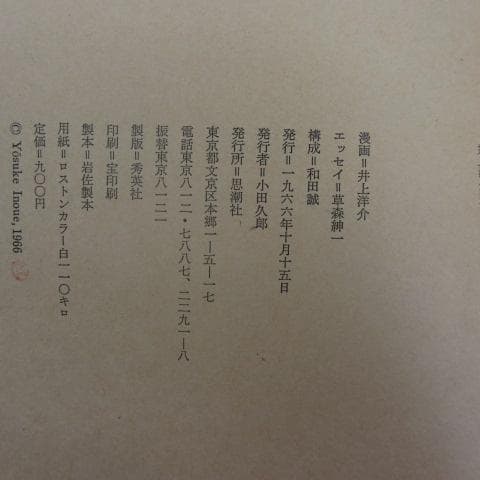 漫画=井上洋介
エッセイ=草森紳一
構成=和田誠
発行=一九六六年十月十五日
発行者=小田久郎
発行所=思潮社
東京都文京区本郷一―五―一七
電話東京八一二・七八八七、二二九一―八
振替東京八一二一
製版=秀英社
印刷=宝印刷
製本=岩佐製本
用紙=ロストンカラー白一一〇キロ
定価=九〇〇円
© Yōsuke Inoue, 1966